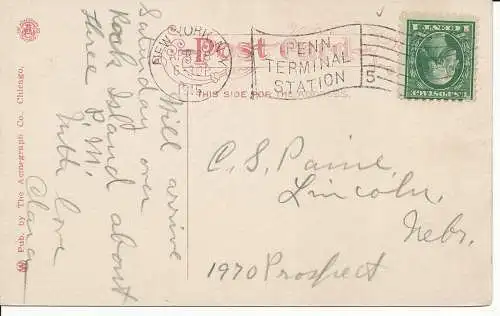 Post Card
THIS SIDE FOR THE
NEW YORK, N.Y.
1915
PENN
TERMINAL
STATION
5
Will arrive
Saturday over
Rock Island about
three P.M.
With love
Clara
C. S. Paine,
Lincoln,
Nebr.
1970 Prospect
Pub. by The Acmegraph Co., Chicago.